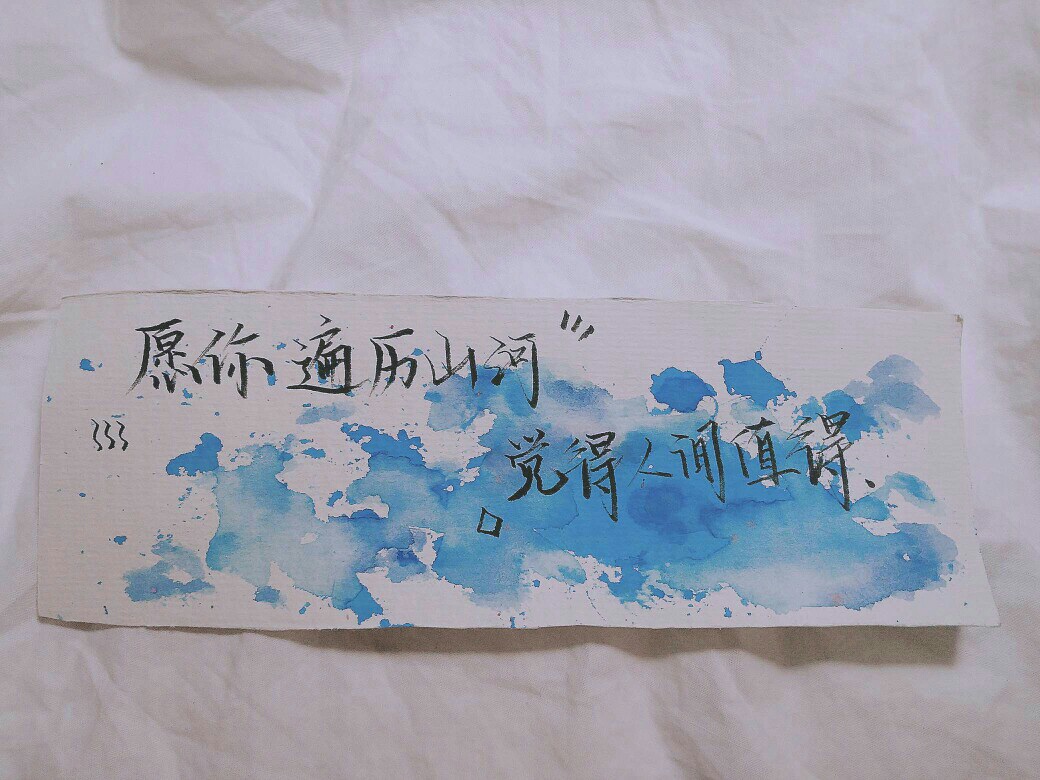 愿你遍历山河
觉得人间值得、